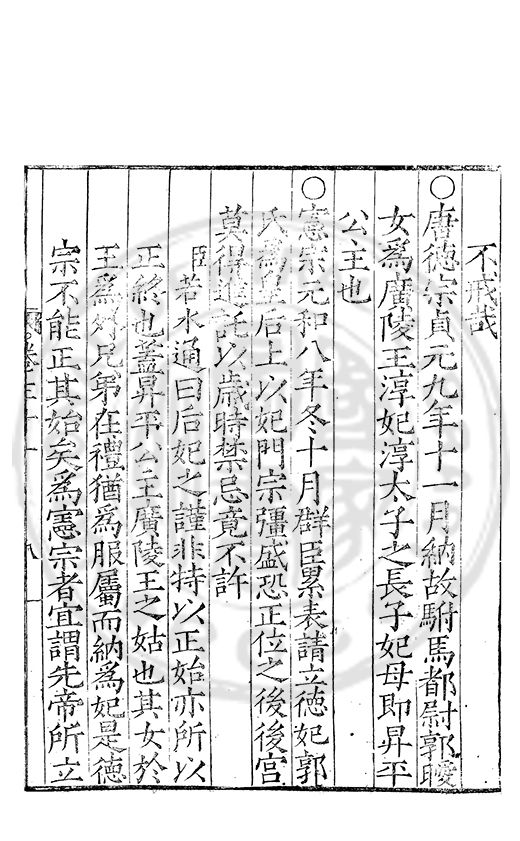 不戒哉
○唐德宗貞元九年十一月納故駙馬都尉郭曖
女爲廣陵王淳妃淳太子之長子妃母即昇平
公主也
○憲宗元和八年冬十月群臣累表請立德妃郭
氏爲皇后上以妃門宗彊盛恐正位之後後宮
莫得進託以歲時禁忌竟不許
臣若水通曰后妃之謹非特以正始亦所以
正終也蓋昇平公主廣陵王之姑也其女於
王爲外兄弟在禮猶爲服屬而納爲妃是德
宗不能正其始矣爲憲宗者宜謂先帝所立
卷三十一 八